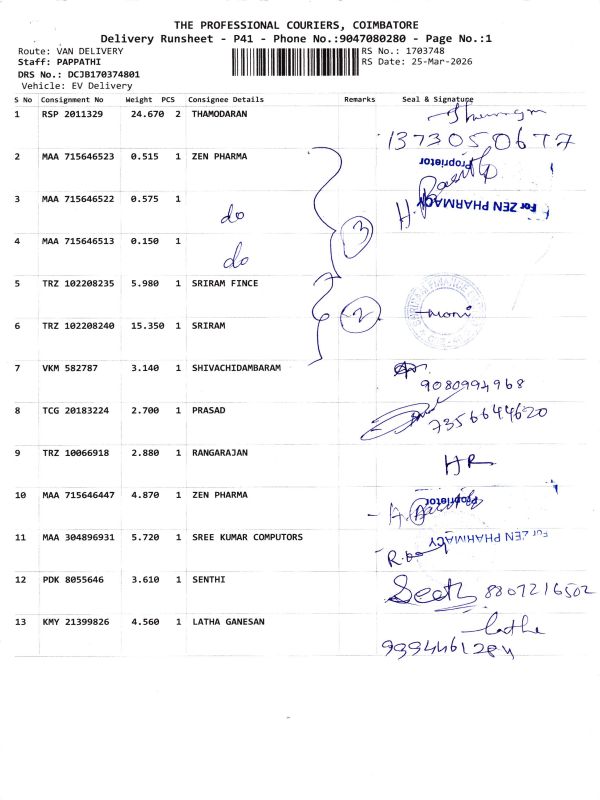 THE PROFESSIONAL COURIERS, COIMBATORE
Delivery Runsheet - P41 - Phone No.:9047080280 - Page No.:1
Route: VAN DELIVERY RS No.: 1703748
Staff: PAPPATHI RS Date: 25-Mar-2026
DRS No.: DCJB170374801
Vehicle: EV Delivery
S No Consignment No Weight PCS Consignee Details Remarks Seal & Signature
1 RSP 2011329 24.670 2 THAMODARAN
2 MAA 715646523 0.515 1 ZEN PHARMA
Proprietor
3 MAA 715646522 0.575 1 do
For ZEN PHARMACY
3
4 MAA 715646513 0.150 1 do
5 TRZ 102208235 5.980 1 SRIRAM FINCE
2
6 TRZ 102208240 15.350 1 SRIRAM
7 VKM 582787 3.140 1 SHIVACHIDAMBARAM
9080994968
8 TCG 20183224 2.700 1 PRASAD
7356644620
9 TRZ 10066918 2.880 1 RANGARAJAN
HR
10 MAA 715646447 4.870 1 ZEN PHARMA
Proprietor
11 MAA 304896931 5.720 1 SREE KUMAR COMPUTORS
For ZEN PHARMACY
12 PDK 8055646 3.610 1 SENTHI
8807216502
13 KMY 21399826 4.560 1 LATHA GANESAN
Latha